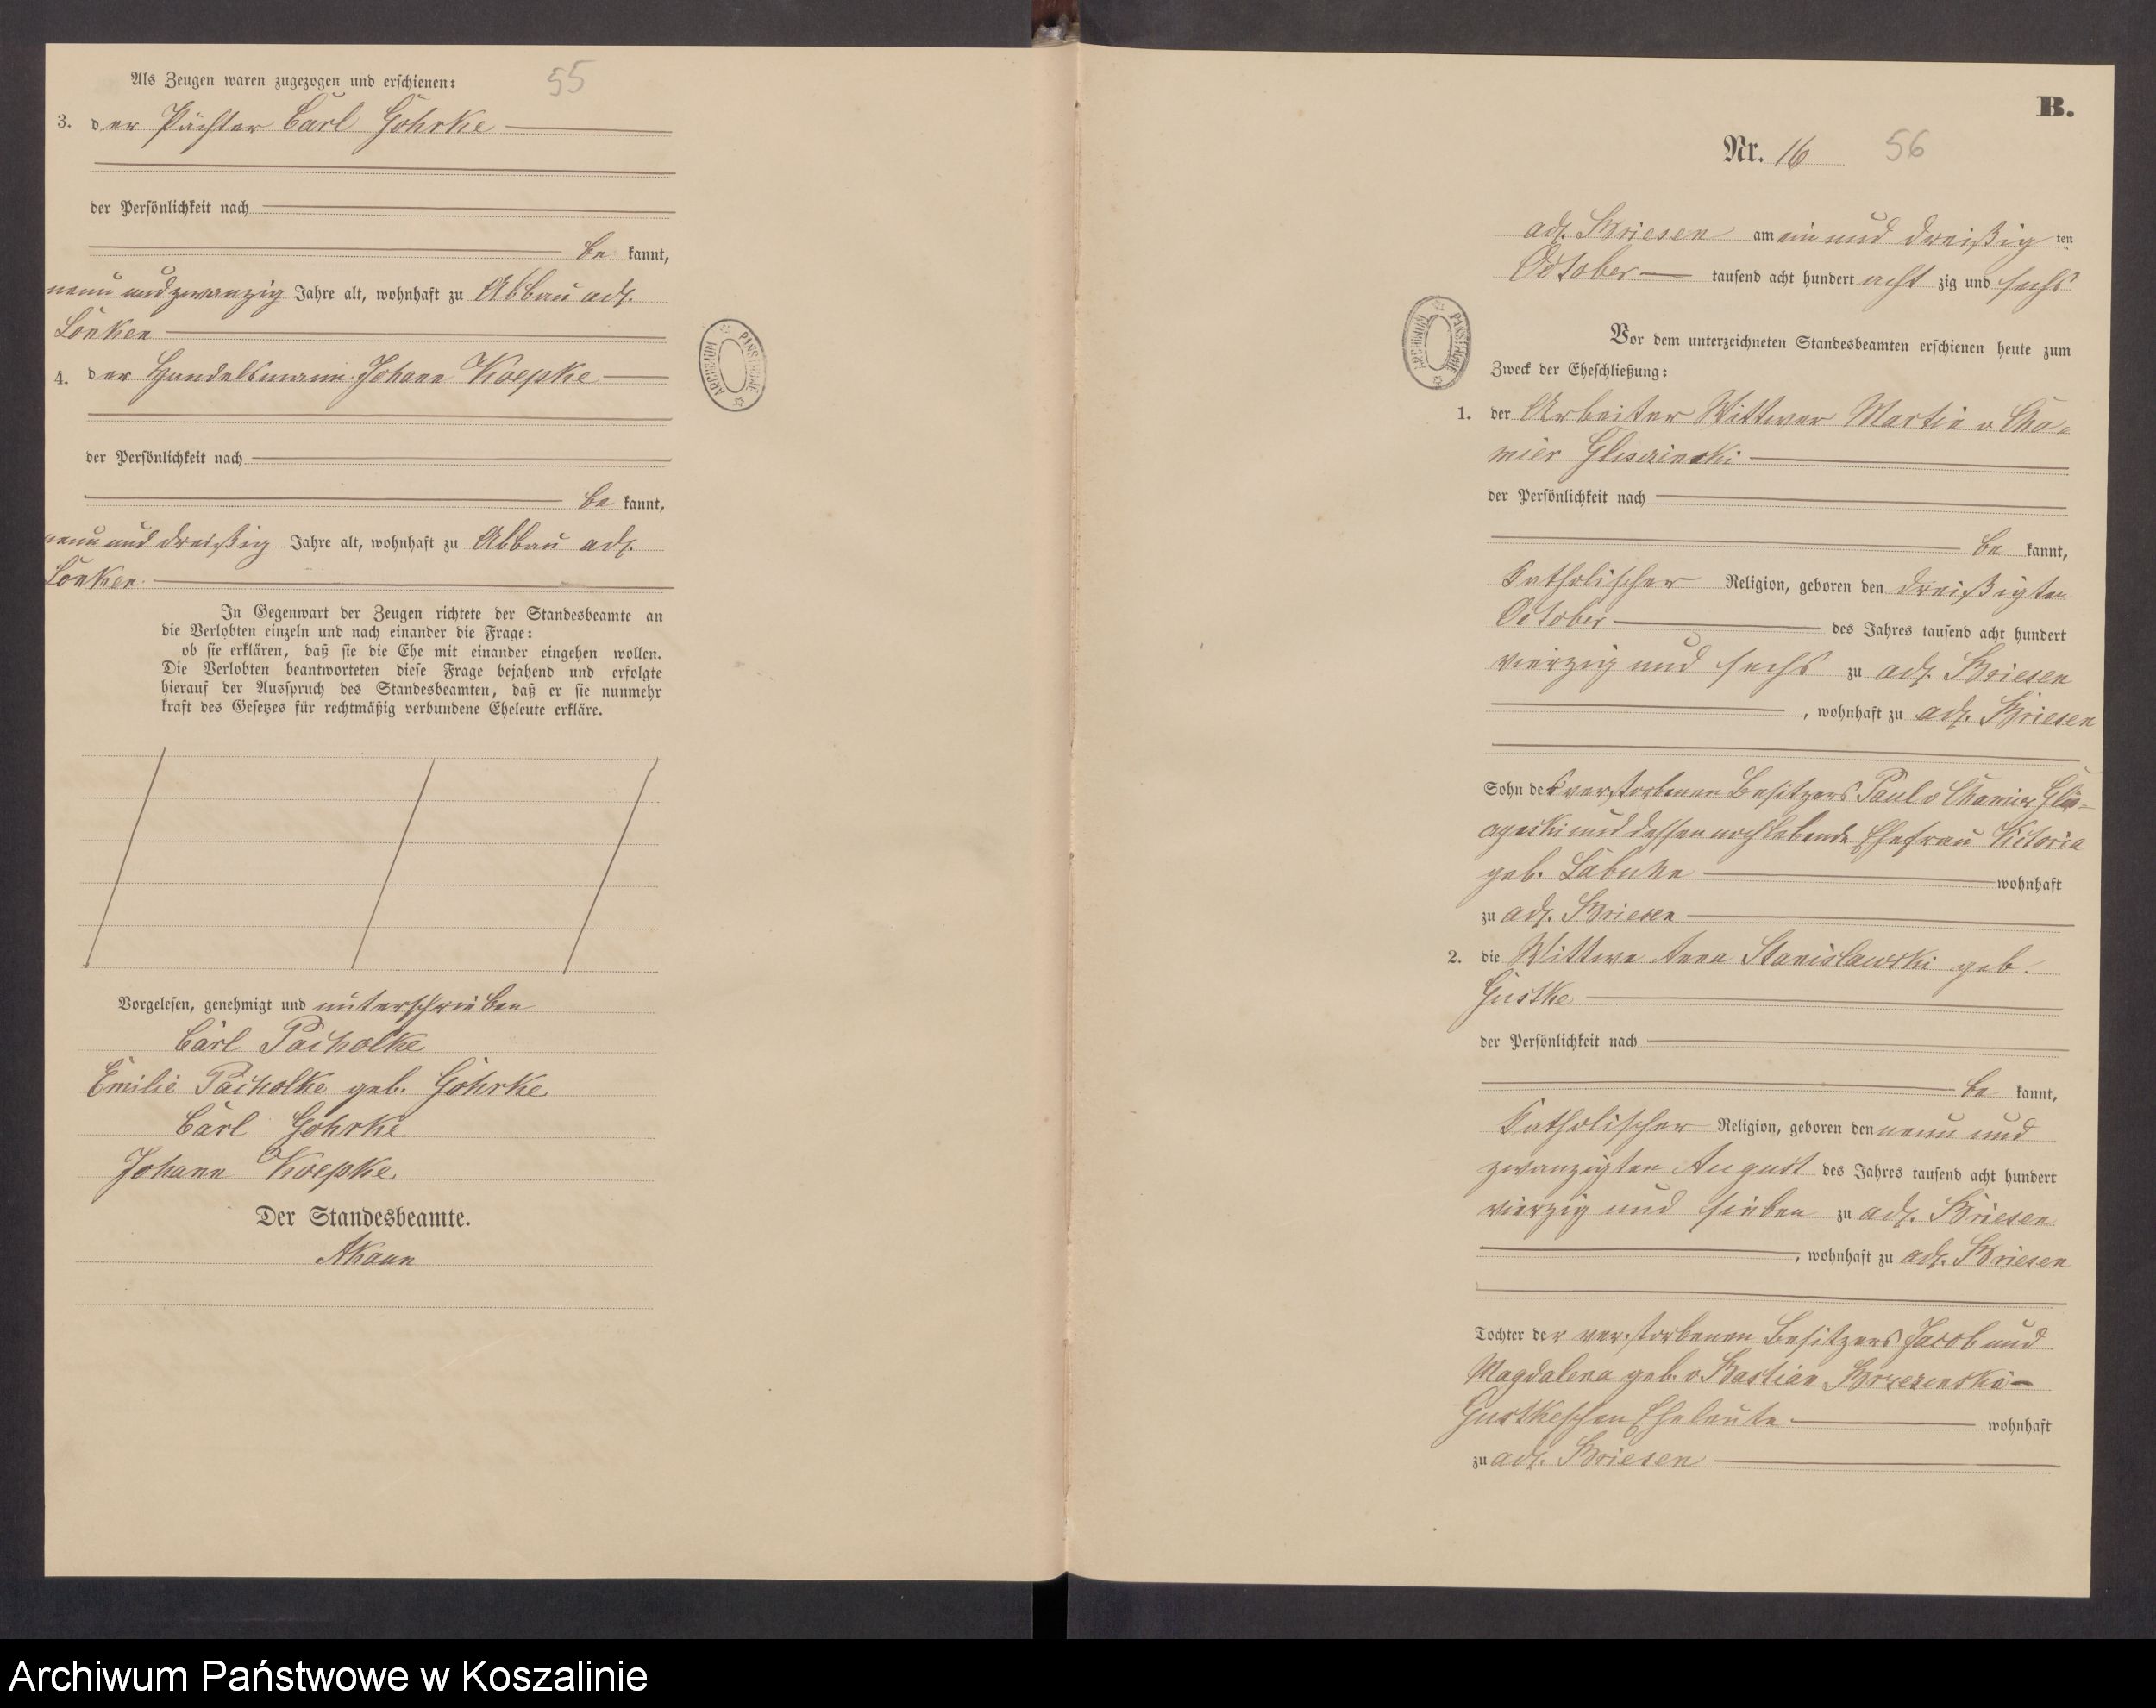 Als Zeugen waren zugezogen und erschienen:
55
3. der Pächter Carl Göhrke
der Persönlichkeit nach
be kannt,
neun und zwanzig Jahre alt, wohnhaft zu Abbau adl.
Lönken
4. der Handelsmann Johann Koepke
der Persönlichkeit nach
be kannt,
neun und dreißig Jahre alt, wohnhaft zu Abbau adl.
Lonken.
In Gegenwart der Zeugen richtete der Standesbeamte an
die Verlobten einzeln und nach einander die Frage:
ob sie erklären, daß sie die Ehe mit einander eingehen wollen.
Die Verlobten beantworteten diese Frage bejahend und erfolgte
hierauf der Ausspruch des Standesbeamten, daß er sie nunmehr
kraft des Gesetzes für rechtmäßig verbundene Eheleute erkläre.
Vorgelesen, genehmigt und unterschrieben
Carl Pacholke
Emilie Pacholke geb. Göhrke
Carl Göhrke
Johann Koepke
Der Standesbeamte.
ARCHIWUM PAŃSTWOWE
B.
Nr. 16
56
adl. Briesen am ein und dreißig ten
October tausend acht hundert acht zig und sechs
Vor dem unterzeichneten Standesbeamten erschienen heute zum
Zweck der Eheschließung:
ARCHIWUM PAŃSTWOWE
1. der Arbeiter Wittwer Martin v Cha-
mier
der Persönlichkeit nach
be kannt,
Katholischer Religion, geboren den dreißigten
October des Jahres tausend acht hundert
vierzig und sechs zu adl. Briesen
, wohnhaft zu adl. Briesen
Sohn des verstorbenen Besitzers Paul v Chamier
und dessen noch lebende Ehefrau Victoria
geb. Labuhn wohnhaft
zu adl. Briesen
2. die Wittwe Anna Stanislawski geb.
Gustke
der Persönlichkeit nach
be kannt,
Katholischer Religion, geboren den neun und
zwanzigten August des Jahres tausend acht hundert
vierzig und sieben zu adl. Briesen
, wohnhaft zu adl. Briesen
Tochter der verstorbenen Besitzers Jacob und
Magdalena geb. v Bastian
Gustkeschen Eheleute wohnhaft
zu adl. Briesen
Archiwum Państwowe w Koszalinie